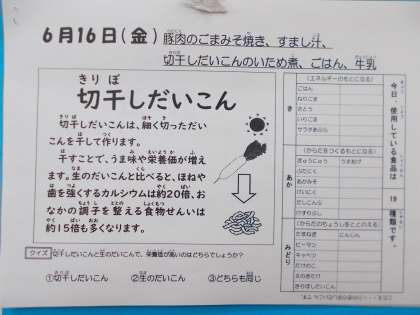 6月16日(金) 豚肉のごまみそ焼き、すまし汁、
切干しだいこんのいため煮、ごはん、牛乳
きり ぼ
切干しだいこん
切干しだいこんは、細く切っただい
こんを干して作ります。
干すことで、うま味や栄養価が増え
ます。生のだいこんと比べると、ほねや
歯を強くするカルシウムは約20倍、お
なかの調子を整える食物せんいは
約15倍も多くなります。
クイズ 切干しだいこんと生のだいこんで、栄養価が高いのはどちらでしょうか?
①切干しだいこん ②生のだいこん ③どちらも同じ
今日使用している食品は 19 種類です。
き
(エネルギーのもとになる)
ごはん
ねりごま
さとう
いりごま
サラダあぶら
あか
(からだをつくるもとになる)
ぎゅうにゅう うすあげ
ぶたにく
あかみそ
けいにく
だしこんぶ
けずりぶし
みどり
(からだのちょうしをととのえる)
たまねぎ にんじん
ピーマン
キャベツ
たけのこ
えのきたけ
切干しだいこん